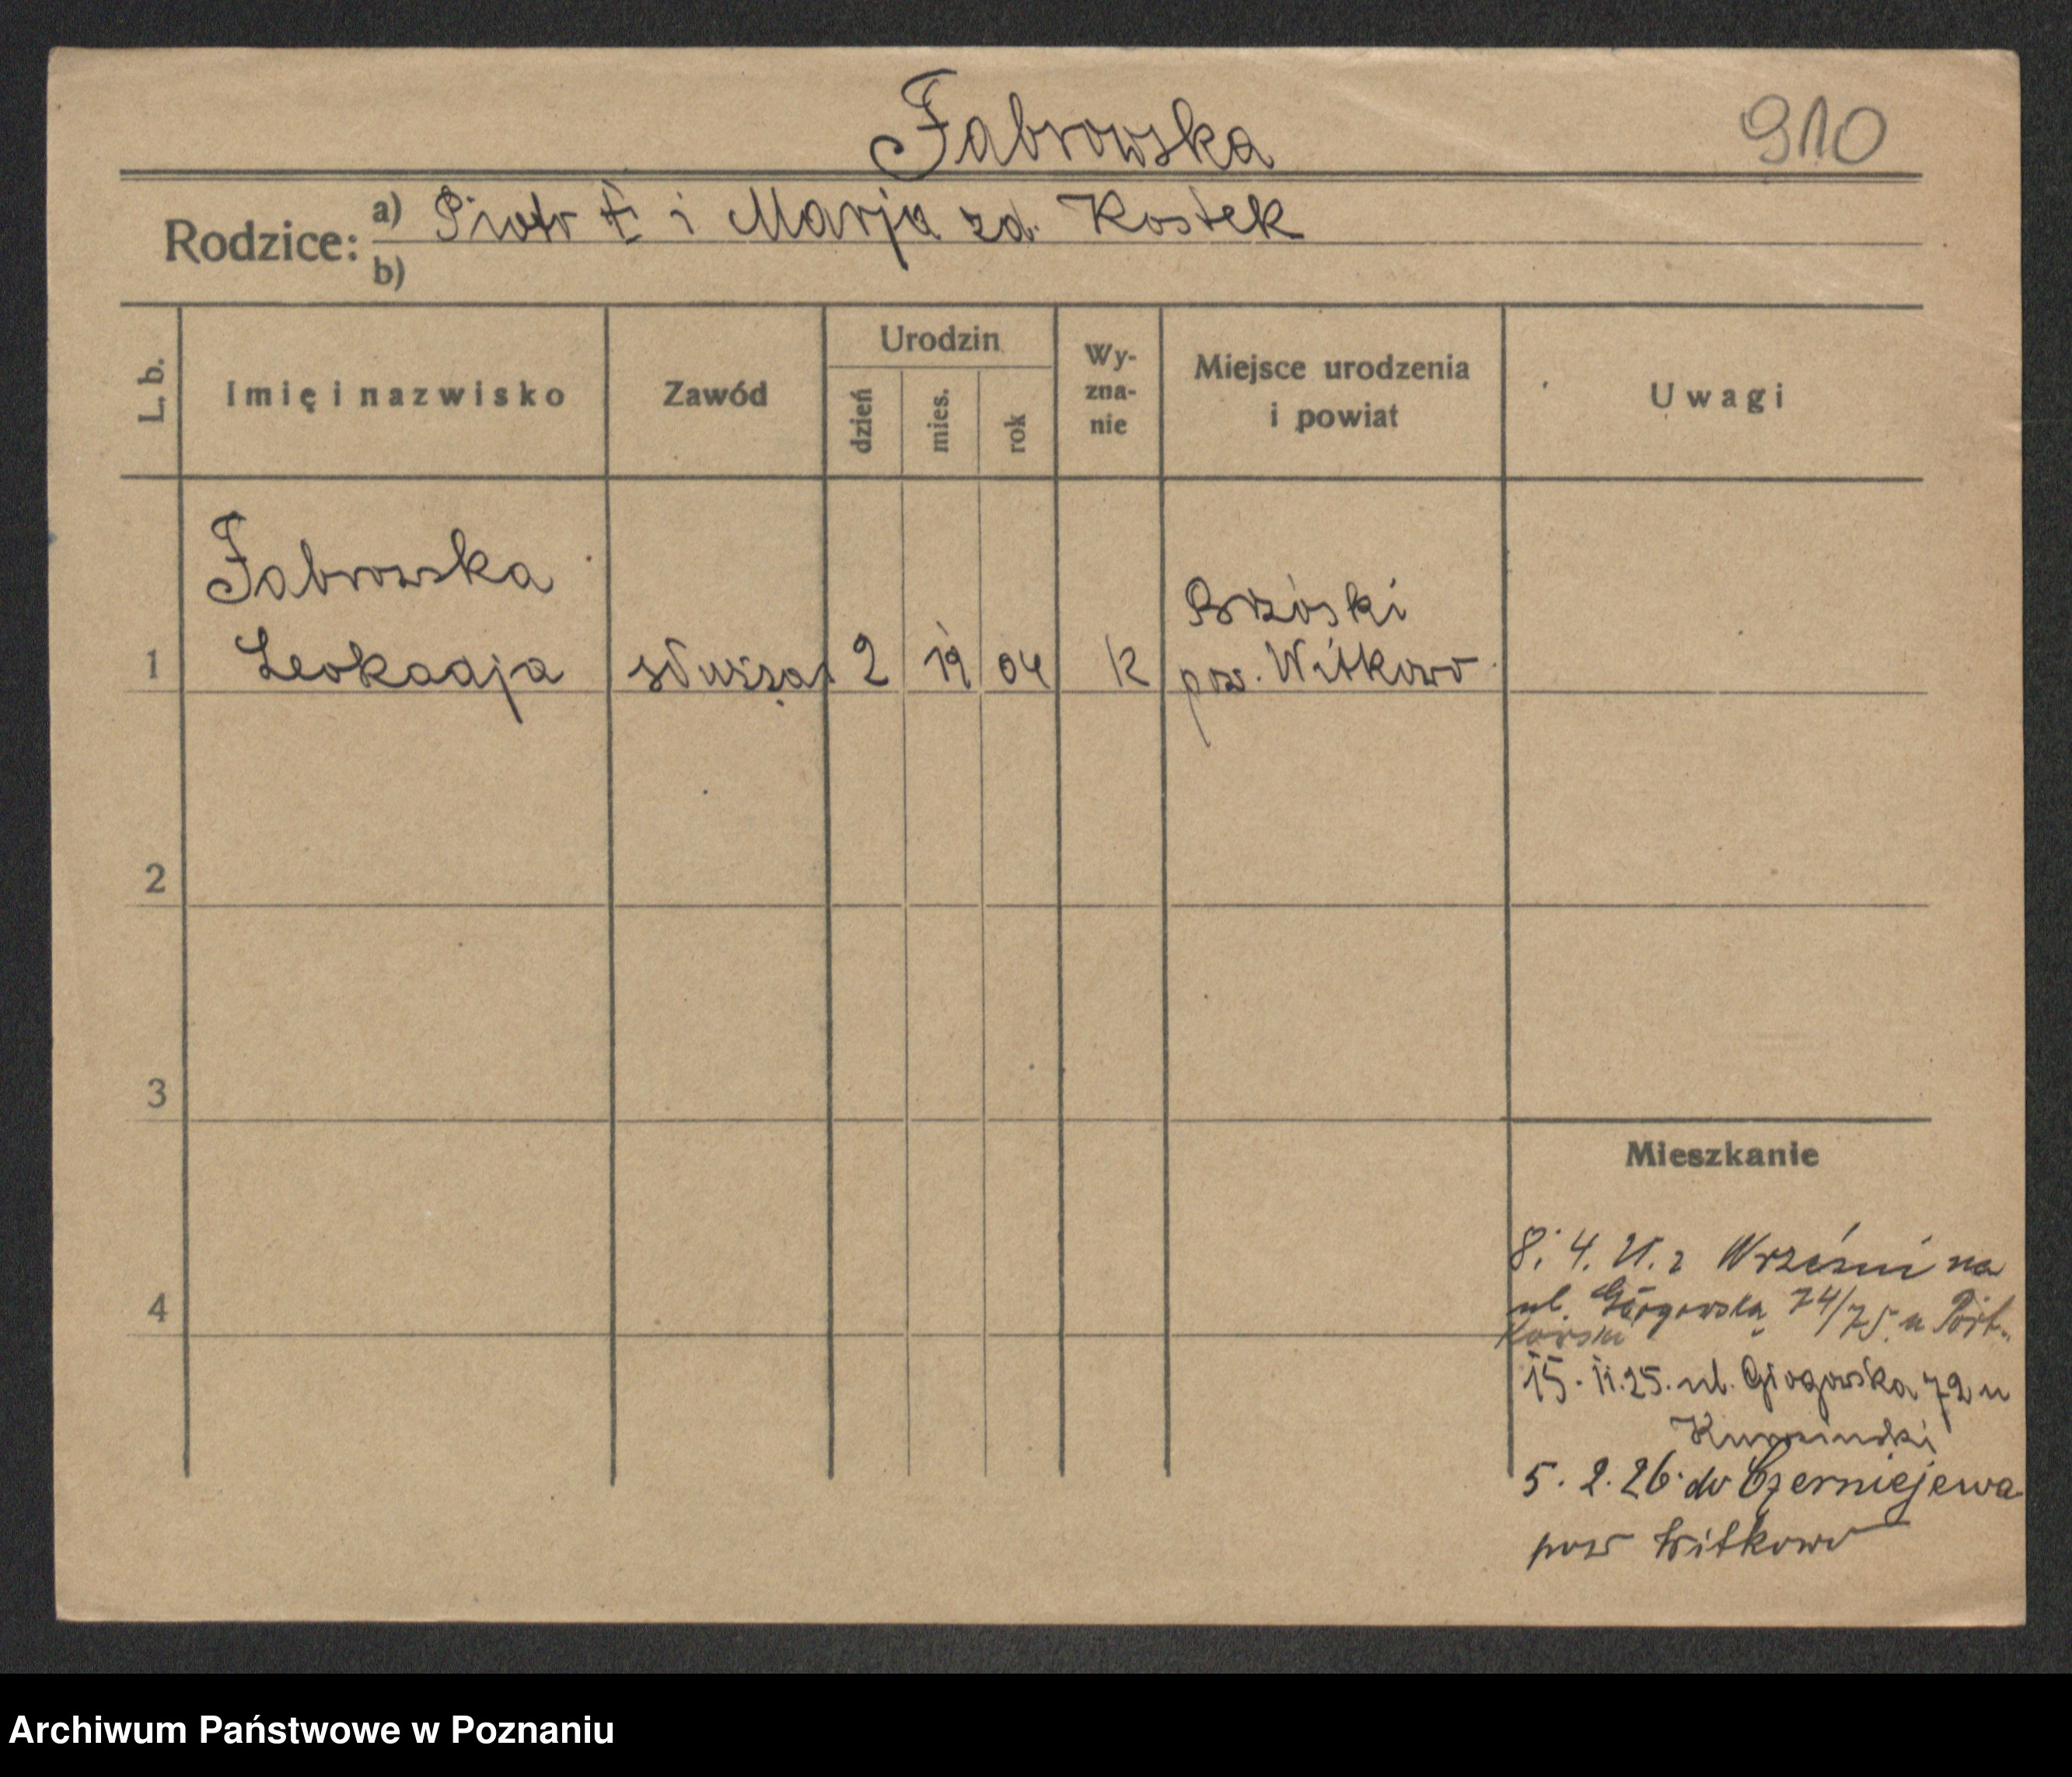 Fabrowska
910
Rodzice: a) Piotr F i Marja zd. Kostek
b)
L. b.
Imię i nazwisko
Zawód
Urodzin
dzień
mies.
rok
Wy-
zna-
nie
Miejsce urodzenia
i powiat
Uwagi
Fabrowska
1 Leokadja służąca 2 12 04 k
Brzóski
pow. Witkowo
2
3
4
Mieszkanie
8. 4. 21. z Wrześni na
ul. Głogowską 74/75 u
15. 11. 25. ul. Głogowska 72 u
5. 2. 26. do Czerniejewa
pow Witkowo
Archiwum Państwowe w Poznaniu